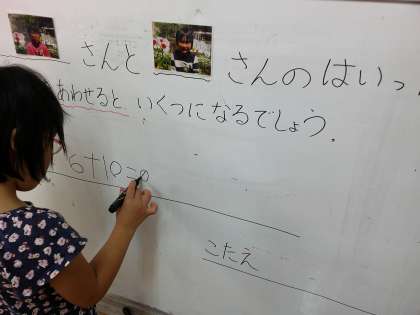 さんと さんのはいっ
あわせると いくつになるでしょう。
6+10=
こたえ